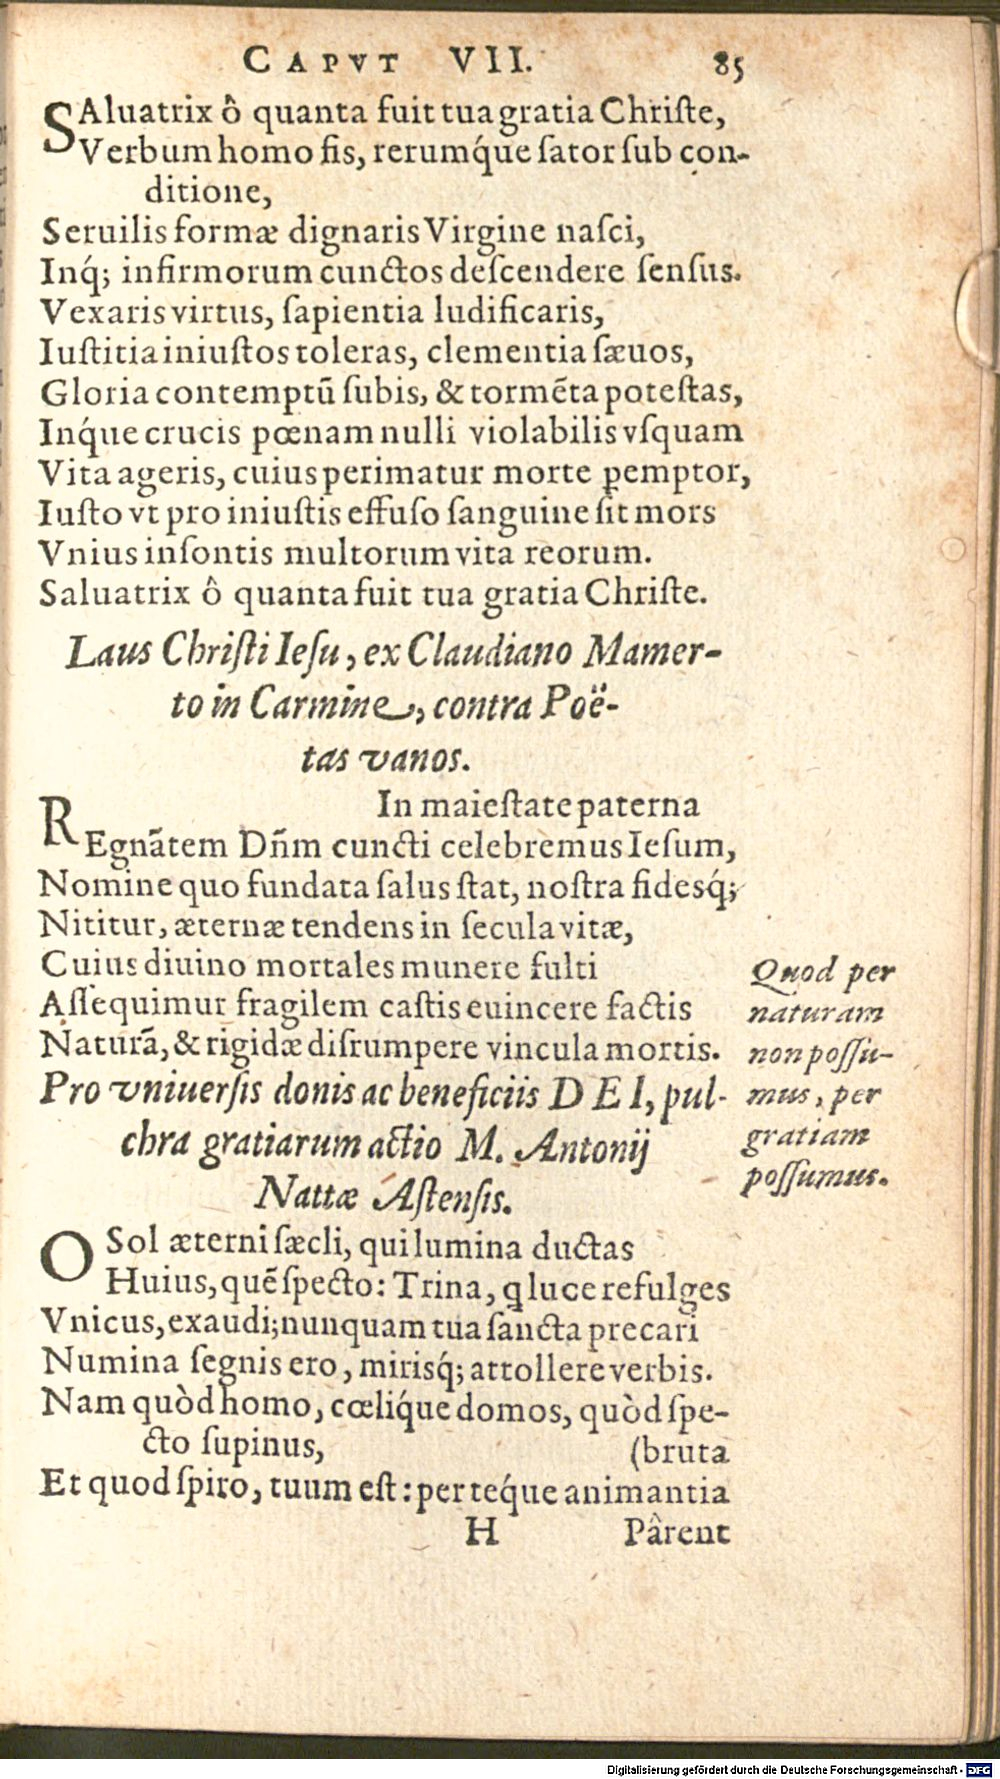 CAPVT VII. 85
SAluatrix ô quanta fuit tua gratia Christe,
Verbum homo fis, rerumq́ue sator sub con-
ditione,
Seruilis formæ dignaris Virgine nasci,
Inq́; infirmorum cunctos descendere sensus.
Vexaris virtus, sapientia ludificaris,
Iustitia iniustos toleras, clementia sæuos,
Gloria contemptũ subis, & tormẽta potestas,
Inq́ue crucis pœnam nulli violabilis vsquam
Vita ageris, cuius perimatur morte ꝑemptor,
Iusto vt pro iniustis effuso sanguine sit mors
Vnius insontis multorum vita reorum.
Saluatrix ô quanta fuit tua gratia Christe.
Laus Christi Iesu, ex Claudiano Mamer-
to in Carmine, contra Poë-
tas vanos.
In maiestate paterna
REgnãtem Dñm cuncti celebremus Iesum,
Nomine quo fundata salus stat, nostra fidesq́;
Nititur, æternæ tendens in secula vitæ,
Cuius diuino mortales munere fulti
Assequimur fragilem castis euincere factis
Naturã, & rigidæ disrumpere vincula mortis.
Quod per
naturam
non possu-
mus, per
gratiam
possumus.
Pro vniuersis donis ac beneficiis DEI, pul-
chra gratiarum actio M. Antonij
Nattæ Astensis.
O Sol æterni sæcli, qui lumina ductas
Huius, quẽ specto: Trina, q luce refulges
Vnicus, exaudi; nunquam tua sancta precari
Numina segnis ero, mirisq́; attollere verbis.
Nam quòd homo, cœliq́ue domos, quòd spe-
cto supinus, (bruta
Et quod spiro, tuum est: per teq́ue animantia
H Pârent
Digitalisierung gefördert durch die Deutsche Forschungsgemeinschaft - DFG